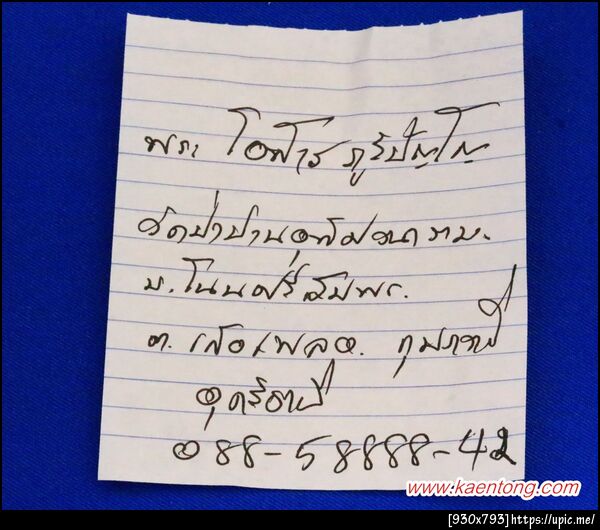 พระ โอฬาร ภูริปัญโญ
วัดป่าบ้าน
บ. โนนศรีสมพร.
ต. เสอเพลอ. กุมภวาปี
อุดรธานี
088-58888-42
www.kaentong.com
[930x793]https://upic.me/